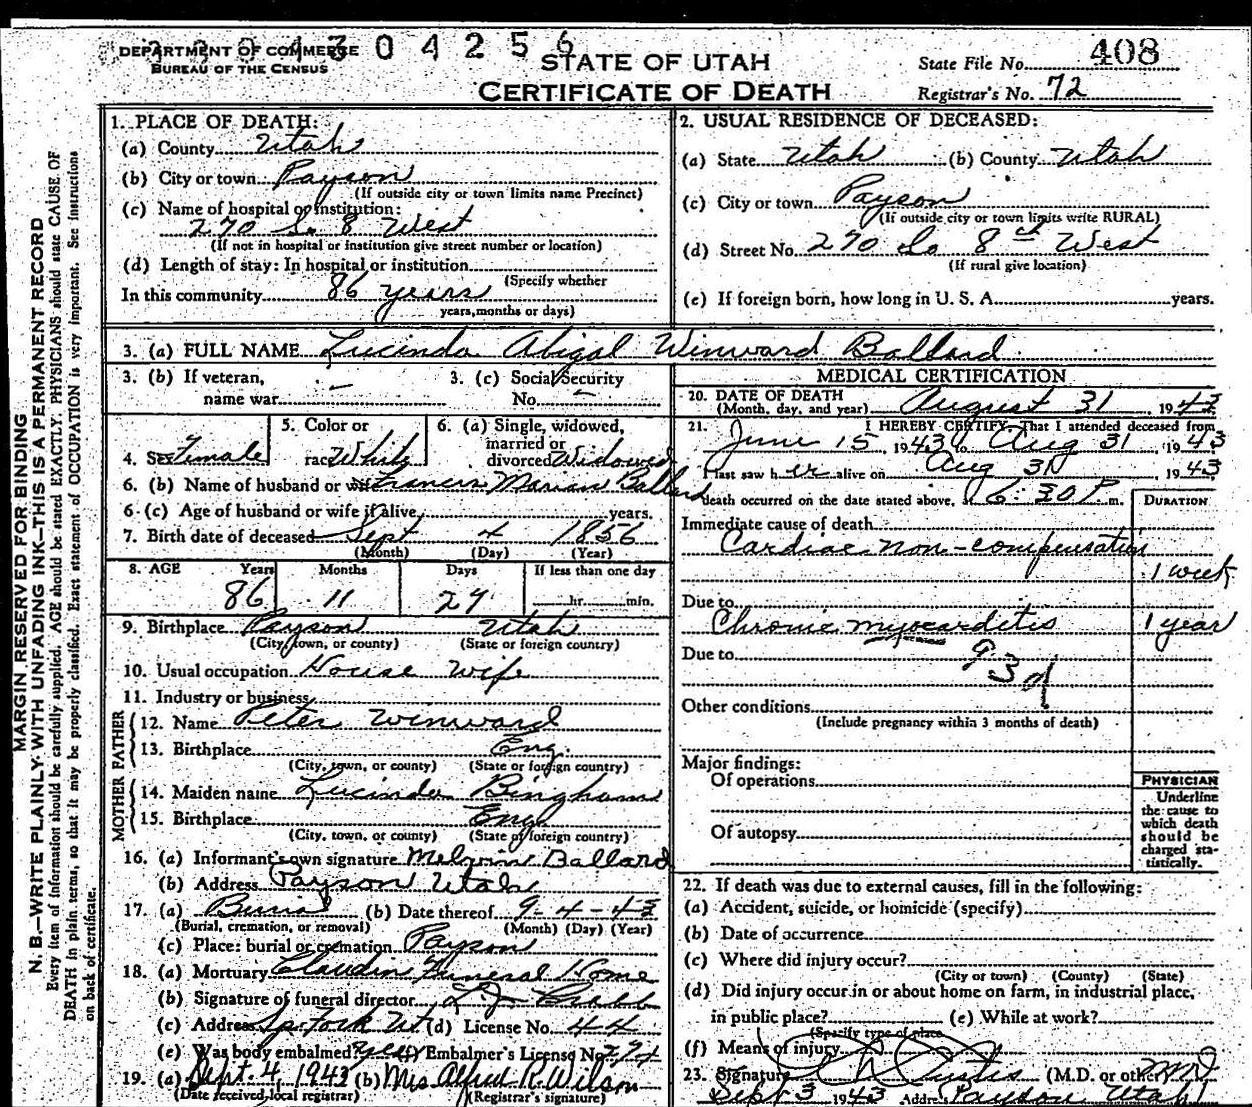 DEPARTMENT OF COMMERCE
BUREAU OF THE CENSUS
304256
STATE OF UTAH
CERTIFICATE OF DEATH
State File No. 408
Registrar's No. 72
MARGIN RESERVED FOR BINDING
N. B.—WRITE PLAINLY WITH UNFADING INK—THIS IS A PERMANENT RECORD
Every item of information should be carefully supplied. AGE should be stated EXACTLY. PHYSICIANS should state CAUSE OF
DEATH in plain terms, so that it may be properly classified. Exact statement of OCCUPATION is very important. See instructions
on back of certificate.
1. PLACE OF DEATH:
(a) County Utah
(b) City or town Payson
(If outside city or town limits name Precinct)
(c) Name of hospital or institution:
270 So 8 West
(If not in hospital or institution give street number or location)
(d) Length of stay: In hospital or institution
(Specify whether
In this community 86 years
years, months or days)
2. USUAL RESIDENCE OF DECEASED:
(a) State Utah (b) County Utah
(c) City or town Payson
(If outside city or town limits write RURAL)
(d) Street No. 270 So 8th West
(If rural give location)
(e) If foreign born, how long in U. S. A. years.
3. (a) FULL NAME Lucinda Abigal Winward Ballard
3. (b) If veteran, name war –
3. (c) Social Security No. –
4. Sex Female
5. Color or race White
6. (a) Single, widowed, married or divorced Widowed
6. (b) Name of husband or wife Francis Marian Ballard
6. (c) Age of husband or wife if alive, years.
7. Birth date of deceased Sept 4 1856
(Month) (Day) (Year)
8. AGE Years Months Days If less than one day
86 11 27 hr. min.
9. Birthplace Payson Utah
(City, town, or county) (State or foreign country)
10. Usual occupation House Wife
11. Industry or business
FATHER
12. Name Peter Winward
13. Birthplace Eng.
(City, town, or county) (State or foreign country)
MOTHER
14. Maiden name Lucinda Bingham
15. Birthplace Engl
(City, town, or county) (State or foreign country)
16. (a) Informant's own signature Melvin Ballard
(b) Address Payson Utah
17. (a) Burial (b) Date thereof 9-4-43
(Burial, cremation, or removal) (Month) (Day) (Year)
(c) Place: burial or cremation Payson
18. (a) Mortuary Claudin Funeral Home
(b) Signature of funeral director
(c) Address Sp. Fork Ut (d) License No. 44
(e) Was body embalmed? yes (f) Embalmer's License No.
19. (a) Sept. 4, 1943 (b) Mrs Alfred R. Wilson
(Date received local registrar) (Registrar's signature)
MEDICAL CERTIFICATION
20. DATE OF DEATH
(Month, day, and year) August 31, 1943
21. I HEREBY CERTIFY, That I attended deceased from
June 15, 1943 to Aug 31, 1943
I last saw her alive on Aug 31, 1943
death occurred on the date stated above, at 6:30 P. m.
DURATION
Immediate cause of death
Cardiac non-compensation
1 week
Due to
Chronic myocarditis 1 year
Due to
93d
Other conditions
(Include pregnancy within 3 months of death)
Major findings:
Of operations
Of autopsy
PHYSICIAN
Underline
the cause to
which death
should be
charged sta-
tistically.
22. If death was due to external causes, fill in the following:
(a) Accident, suicide, or homicide (specify)
(b) Date of occurrence
(c) Where did injury occur?
(City or town) (County) (State)
(d) Did injury occur in or about home on farm, in industrial place,
in public place? (e) While at work?
(Specify type of place)
(f) Means of injury
23. Signature Curtis (M.D. or other) MD
Sept 3 1943 Address Payson Utah